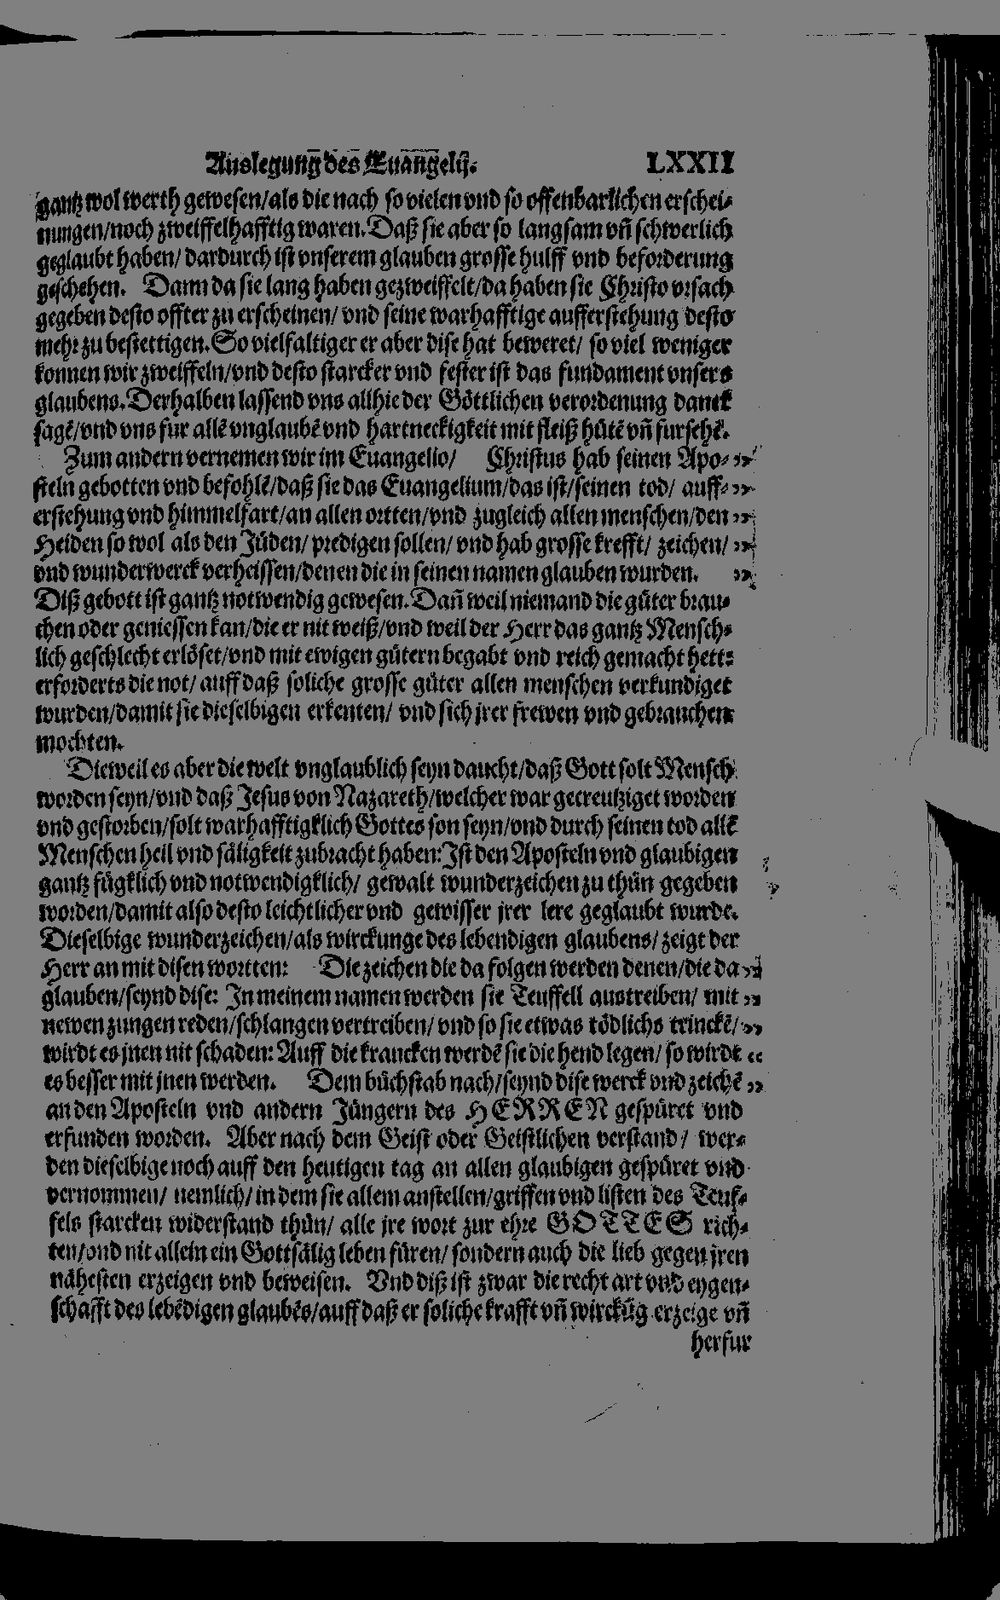 Auslegung des Euangelij. LXXII
gantz wol werth gewesen/als die nach so vielen vnd so offenbarlichen erschei-
nungen/noch zweiffelhafftig waren. Daß sie aber so langsam vñ schwerlich
geglaubt haben/ dardurch ist vnserem glauben grosse hulff vnd beforderung
geschehen. Dann da sie lang haben gezweiffelt/da haben sie Christo vrsach
gegeben desto offter zu erscheinen/ vnd seine warhafftige aufferstehung desto
mehr zu bestettigen. So vielfaltiger er aber dise hat beweret/ so viel weniger
konnen wir zweiffeln/vnd desto starcker vnd fester ist das fundament vnsers
glaubens. Derhalben lassend vns allhie der Göttlichen verordenung danck
sagẽ/vnd vns fur allẽ vnglaubẽ vnd hartneckigkeit mit fleiß hütẽ vñ fursehẽ.
Zum andern vernemen wir im Euangelio/ Christus hab seinen Apo- „
steln gebotten vnd befohlẽ/daß sie das Euangelium/das ist/seinen tod/ auff- „
erstehung vnd himmelfart/an allen ortten/vnd zugleich allen menschen/den „
Heiden so wol als den Jüden/ predigen sollen/ vnd hab grosse krefft/ zeichen/ „
vnd wunderwerck verheissen/denen die in seinen namen glauben wurden. „
Diß gebott ist gantz notwendig gewesen. Dañ weil niemand die güter brau-
chen oder geniessen kan/die er nit weiß/vnd weil der Herr das gantz Mensch-
lich geschlecht erlöset/vnd mit ewigen gütern begabt vnd reich gemacht hett:
erforderts die not/ auff daß soliche grosse güter allen menschen verkundiget
wurden/damit sie dieselbigen erkenten/ vnd sich jrer frewen vnd gebrauchen
mochten.
Dieweil es aber die welt vnglaublich seyn daucht/daß Gott solt Mensch
worden seyn/vnd daß Jesus von Nazareth/welcher war gecreutziget worden
vnd gestorben/solt warhafftigklich Gottes son seyn/vnd durch seinen tod allẽ
Menschen heil vnd säligkeit zubracht haben: Ist den Aposteln vnd glaubigen
gantz fügklich vnd notwendigklich/ gewalt wunderzeichen zu thün gegeben
worden/damit also desto leichtlicher vnd gewisser jrer lere geglaubt wurde.
Dieselbige wunderzeichen/als wirckunge des lebendigen glaubens/ zeigt der
Herr an mit disen wortten: Die zeichen die da folgen werden denen/die da „
glauben/seynd dise: In meinem namen werden sie Teuffell austreiben/ mit „
newen zungen reden/schlangen vertreiben/ vnd so sie etwas tödlichs trinckẽ/ „
wirdt es jnen nit schaden: Auff die krancken werdẽ sie die hend legen/ so wirdt „
es besser mit jnen werden. Dem büchstab nach/seynd dise werck vnd zeichẽ „
an den Aposteln vnd andern Jüngern des HERREN gespüret vnd
erfunden worden. Aber nach dem Geist oder Geistlichen verstand/ wer-
den dieselbige noch auff den heutigen tag an allen glaubigen gespüret vnd
vernommen/ nemlich/ in dem sie allem anstellen/griffen vnd listen des Teuf-
fels starcken widerstand thün/ alle jre wort zur ehre GOTTES rich-
ten/vnd nit allein ein Gottsälig leben füren/ sondern auch die lieb gegen jren
nähesten erzeigen vnd beweisen. Vnd diß ist zwar die recht art vnd eygen-
schafft des lebẽdigen glaubẽs/auff daß er soliche krafft vñ wirckũg erzeige vñ
herfur